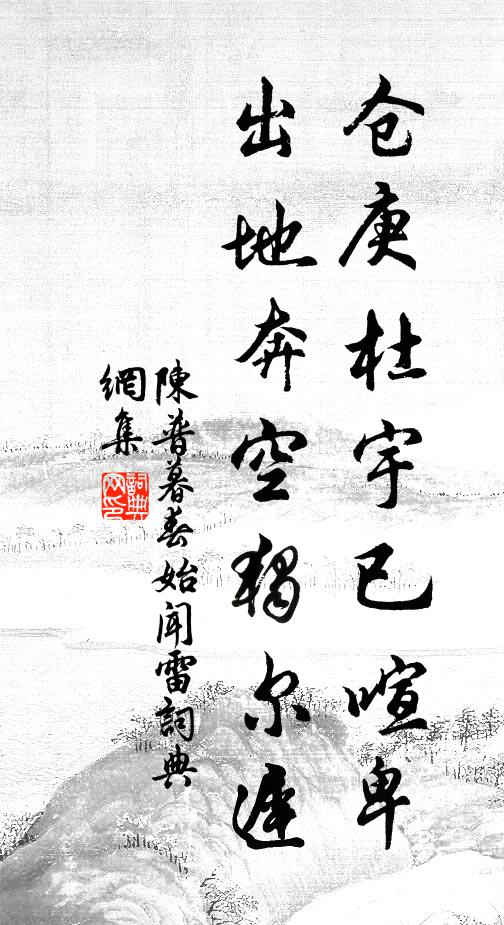 仓庚杜宇已喧卑
出地奔空独尔遲
陳普暮春始闻雷詞典
網集
詞典
网印